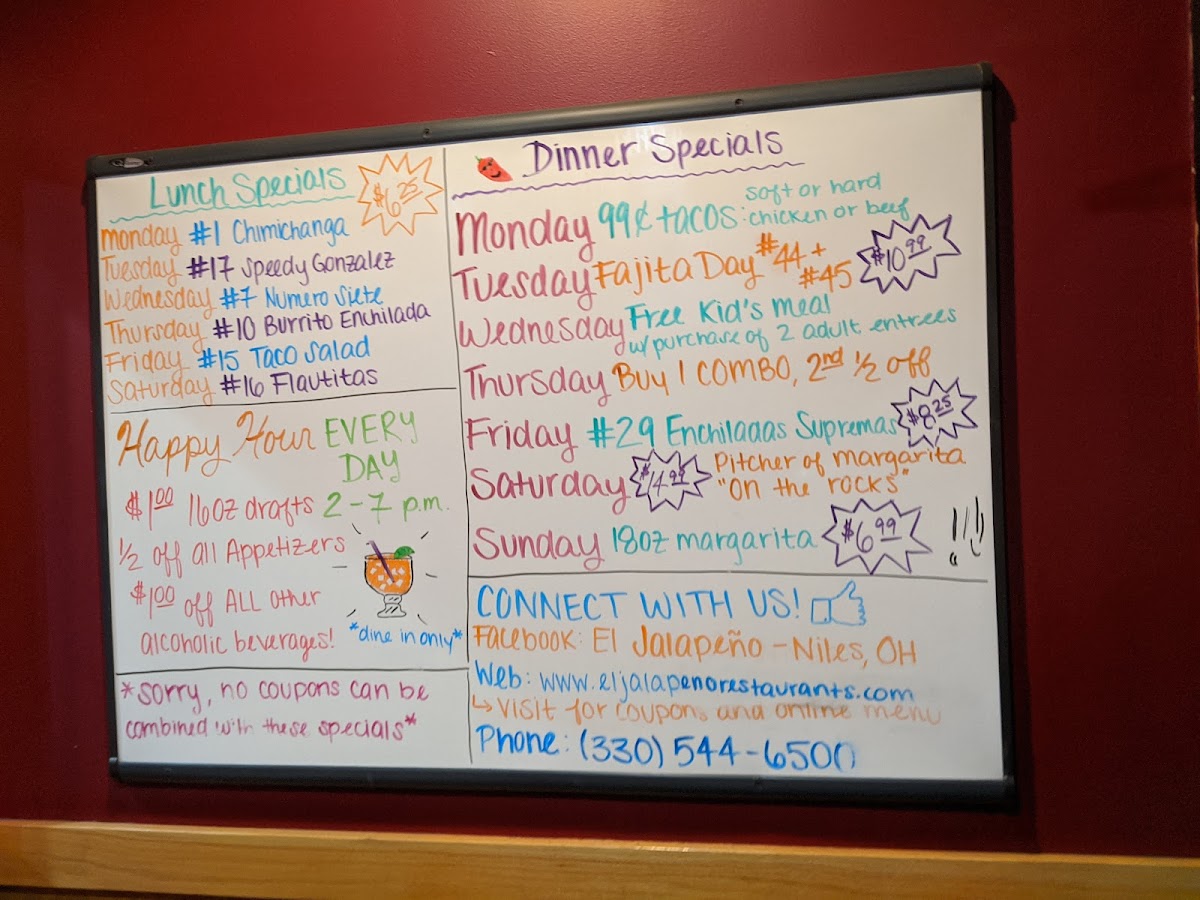 Lunch Specials
$6.25
Monday #1 Chimichanga
Tuesday #17 Speedy Gonzalez
Wednesday #7 Numero Siete
Thursday #10 Burrito Enchilada
Friday #15 Taco Salad
Saturday #16 Flautitas
Happy Hour EVERY
DAY
$1.00 16oz drafts 2-7 p.m.
1/2 off all Appetizers
$1.00 off ALL other
alcoholic beverages!
*dine in only*
*sorry, no coupons can be
combined with these specials*
Dinner Specials
Monday 99¢ tacos: soft or hard
chicken or beef
Tuesday Fajita Day #44 +
#45
$10.99
Wednesday Free Kid's meal
w/purchase of 2 adult entrees
Thursday Buy 1 COMBO, 2nd 1/2 off
Friday #29 Enchiladas Supremas $8.25
Saturday $14.99 Pitcher of margarita
"On the rocks"
Sunday 18oz margarita $6.99
CONNECT WITH US!
Facebook: El Jalapeño - Niles, OH
Web: www.eljalapenorestaurants.com
↳ Visit for coupons and online menu
Phone: (330) 544-6500